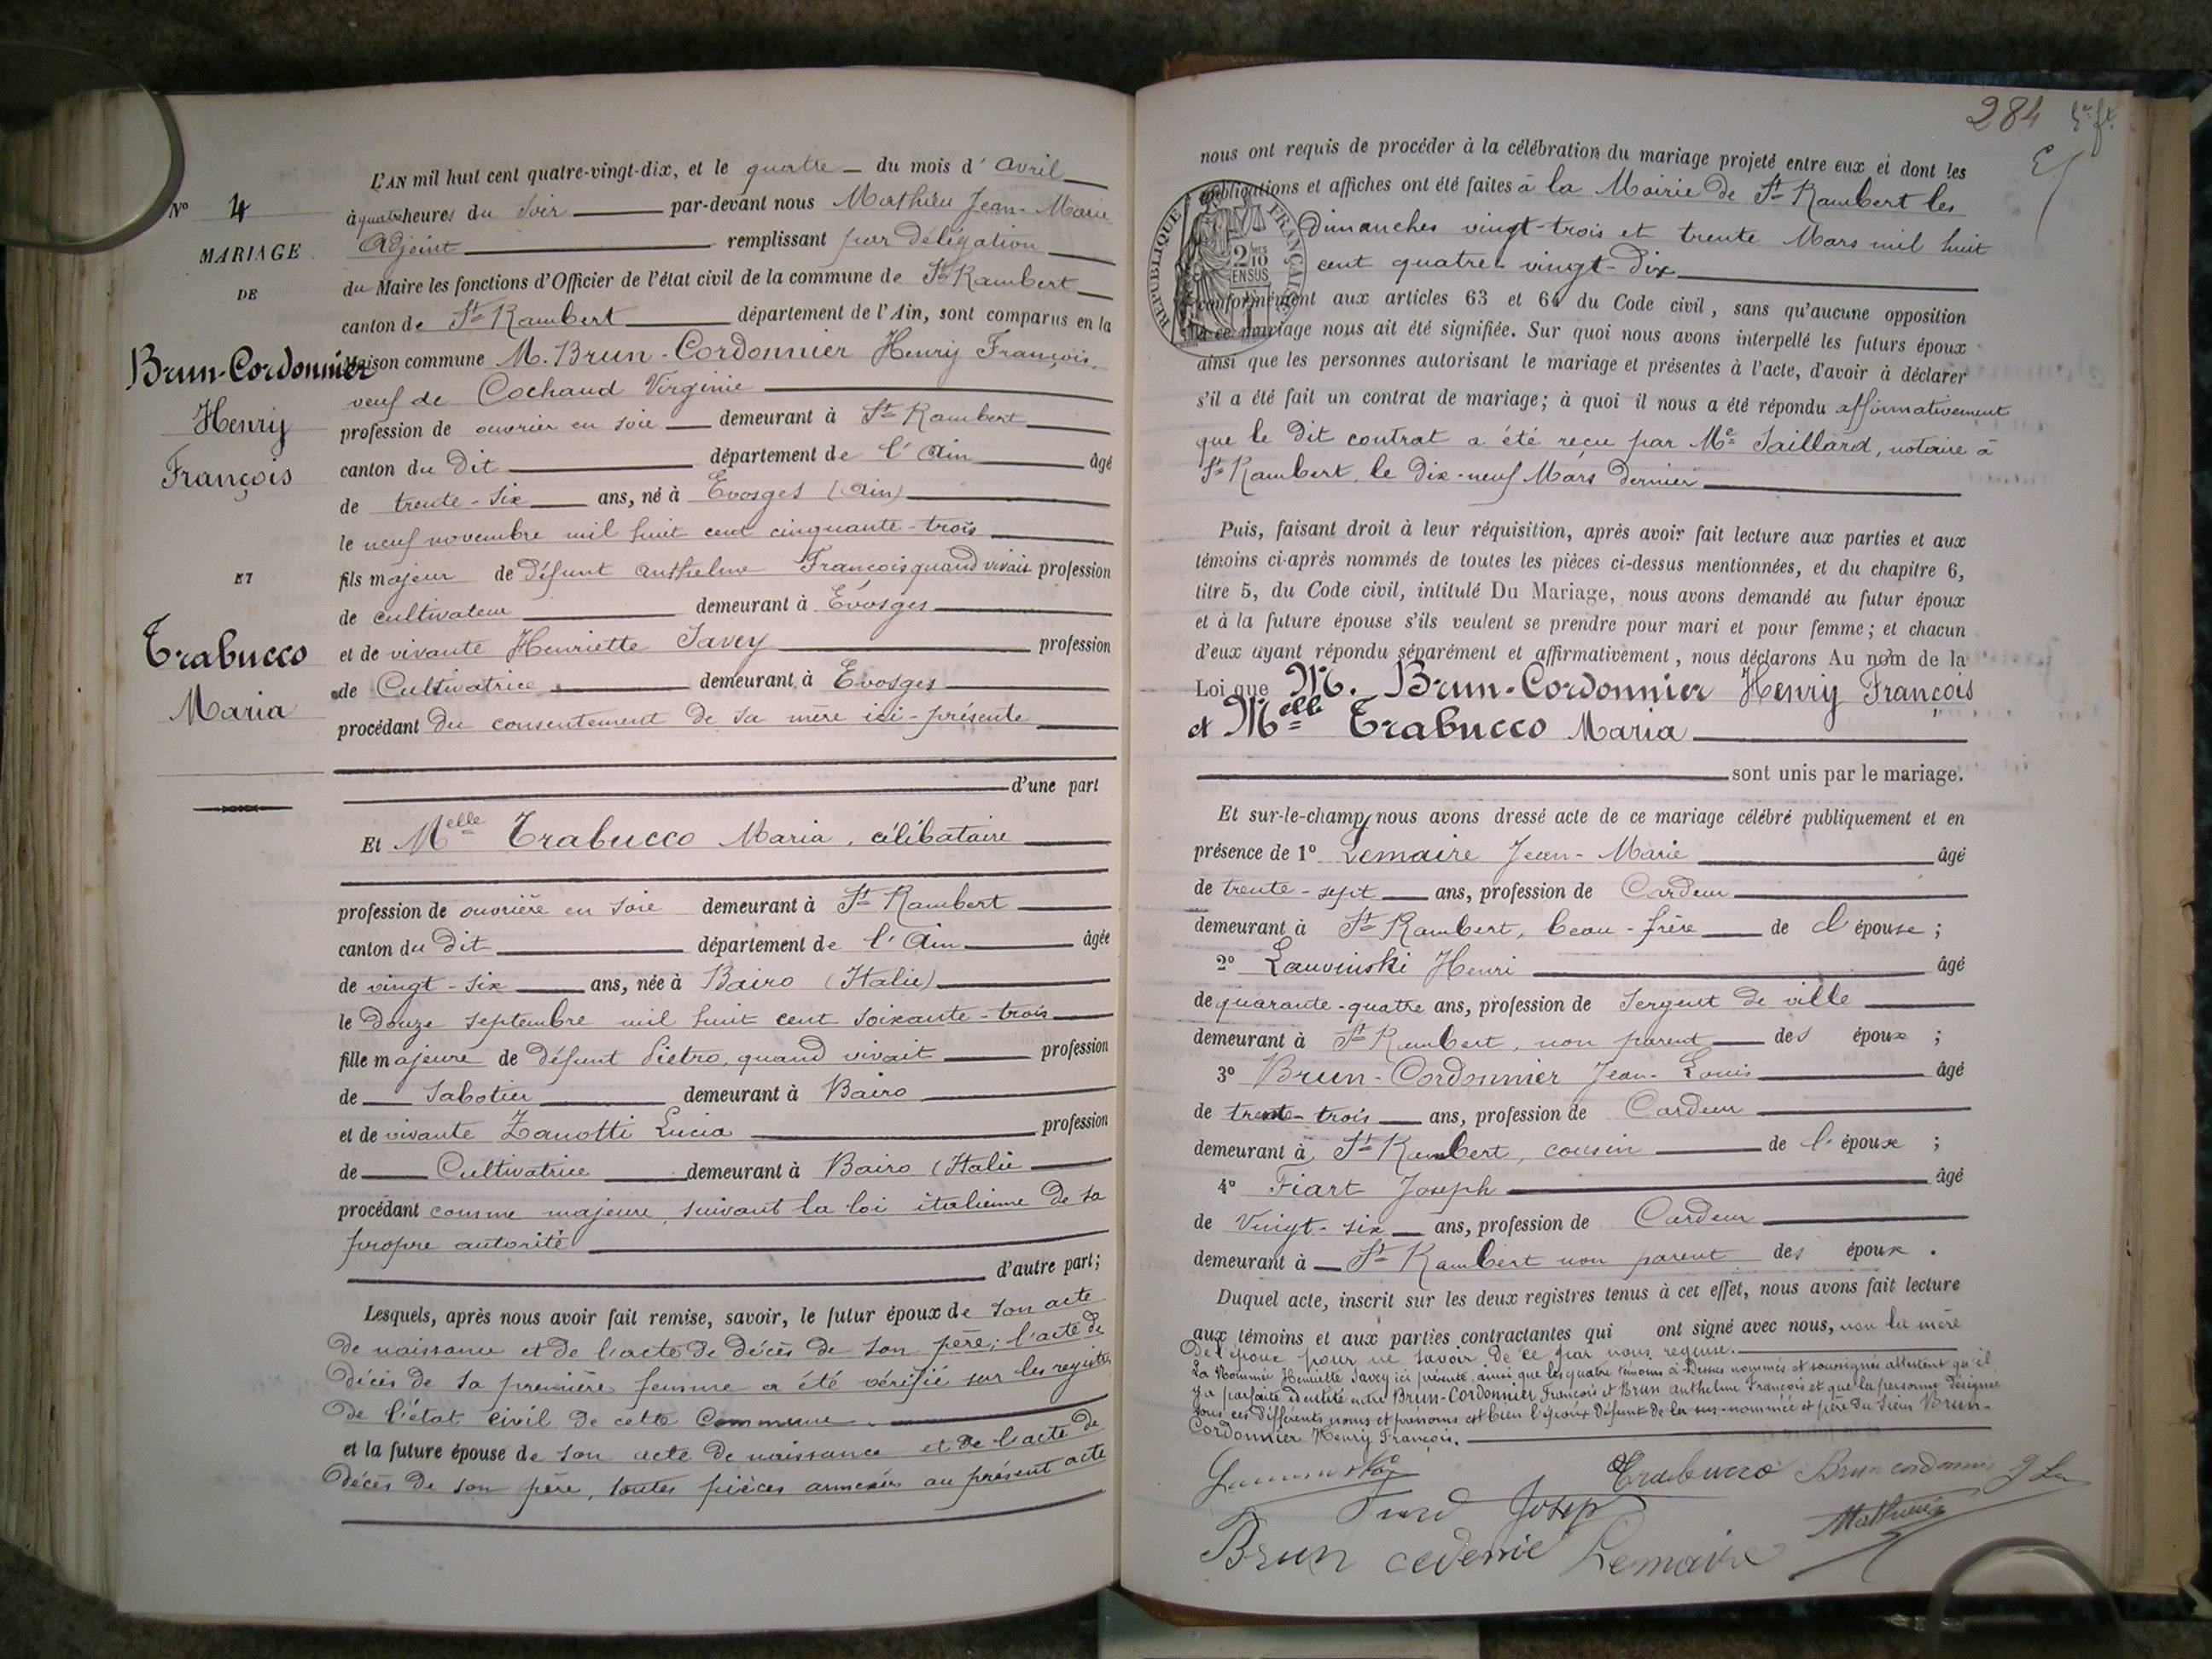 L'AN mil huit cent quatre-vingt-dix, et le quatre du mois d'avril
à quatre heures du soir par-devant nous Mathieu Jean-Marie
Adjoint remplissant par délégation
du Maire les fonctions d'Officier de l'état civil de la commune de St Rambert
canton de St Rambert département de l'Ain, sont comparus en la
maison commune M. Brun-Cordonnier Henry François,
veuf de Cochaud Virginie
profession de ouvrier en soie demeurant à St Rambert
canton du dit département de l'Ain âgé
de trente-six ans, né à Evosges (Ain)
le neuf novembre mil huit cent cinquante-trois
fils majeur de défunt Anthelme François quand vivait profession
de cultivateur demeurant à Évosges
et de vivante Henriette Savey profession
de Cultivatrice demeurant à Evosges
procédant du consentement de sa mère ici-présente
d'une part
Et Melle Trabucco Maria, célibataire
profession de ouvrière en soie demeurant à St Rambert
canton du dit département de l'Ain âgée
de vingt-six ans, née à Bairo (Italie)
le douze septembre mil huit cent soixante-trois
fille majeure de défunt Pietro, quand vivait profession
de Sabotier demeurant à Bairo
et de vivante Zanotti Lucia profession
de Cultivatrice demeurant à Bairo (Italie
procédant comme majeure, suivant la loi italienne de sa
propre autorité
d'autre part;
Lesquels, après nous avoir fait remise, savoir, le futur époux de son acte
de naissance et de l'acte de décès de son père; l'acte de
décès de sa première femme a été vérifié sur les registres
de l'état civil de cette Commune
et la future épouse de son acte de naissance et de l'acte de
décès de son père, toutes pièces annexées au présent acte
N° 4
MARIAGE
DE
Brun-Cordonnier
Henry
François
ET
Trabucco
Maria
284
nous ont requis de procéder à la célébration du mariage projeté entre eux et dont les
publications et affiches ont été faites à la Mairie de St Rambert les
Dimanches vingt-trois et trente Mars mil huit
cent quatre-vingt-dix
conformément aux articles 63 et 64 du Code civil, sans qu'aucune opposition
à ce mariage nous ait été signifiée. Sur quoi nous avons interpellé les futurs époux
ainsi que les personnes autorisant le mariage et présentes à l'acte, d'avoir à déclarer
s'il a été fait un contrat de mariage; à quoi il nous a été répondu affirmativement
que le dit contrat a été reçu par Me Saillard, notaire à
St Rambert, le dix-neuf Mars dernier
Puis, faisant droit à leur réquisition, après avoir fait lecture aux parties et aux
témoins ci-après nommés de toutes les pièces ci-dessus mentionnées, et du chapitre 6,
titre 5, du Code civil, intitulé Du Mariage, nous avons demandé au futur époux
et à la future épouse s'ils veulent se prendre pour mari et pour femme; et chacun
d'eux ayant répondu séparément et affirmativement, nous déclarons Au nom de la
Loi que M. Brun-Cordonnier Henry François
et Melle Trabucco Maria
sont unis par le mariage.
Et sur-le-champ, nous avons dressé acte de ce mariage célébré publiquement et en
présence de 1° Lemaire Jean-Marie âgé
de trente-sept ans, profession de Cardeur
demeurant à St Rambert, beau-frère de l'épouse;
2° Lauvinski Henri âgé
de quarante-quatre ans, profession de Sergent de ville
demeurant à St Rambert, non parent des époux;
3° Brun-Cordonnier Jean-Louis âgé
de trente-trois ans, profession de Cardeur
demeurant à St Rambert, cousin de l'époux;
4° Fiart Joseph âgé
de Vingt-six ans, profession de Cardeur
demeurant à St Rambert non parent des époux.
Duquel acte, inscrit sur les deux registres tenus à cet effet, nous avons fait lecture
aux témoins et aux parties contractantes qui ont signé avec nous, non la mère
de l'époux pour ne savoir de ce par nous requise.
La Nommée Henriette Savey ici présente, ainsi que les quatre témoins ci-dessus nommés et soussignés attestent qu'il
y a parfaite identité entre Brun-Cordonnier François et Brun Anthelme François et que la personne désignée
sous ces différents noms et prénoms est bien l'époux défunt de la sus-nommée et père du sieur Brun-
Cordonnier Henry François.
Trabucco Brun cordonnier
Josep
Brun Lemaire Mathieu
REPUBLIQUE FRANÇAISE
2
10
EN SUS